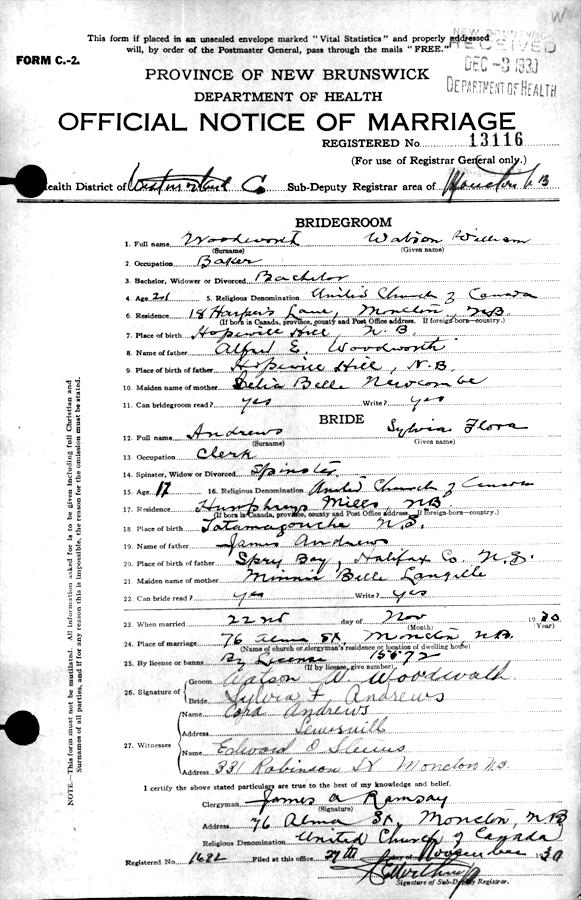 This form if placed in an unsealed envelope marked "Vital Statistics" and properly addressed
will, by order of the Postmaster General, pass through the mails "FREE."
NEW BRUNSWICK
RECEIVED
DEC -3 1930
DEPARTMENT OF HEALTH
FORM C.-2.
PROVINCE OF NEW BRUNSWICK
DEPARTMENT OF HEALTH
OFFICIAL NOTICE OF MARRIAGE
REGISTERED No. 13116
(For use of Registrar General only.)
Health District of Westmorland Co Sub-Deputy Registrar area of Moncton N B
BRIDEGROOM
1. Full name Woodworth Watson William
(Surname) (Given name)
2. Occupation Baker
3. Bachelor, Widower or Divorced Bachelor
4. Age 21 5. Religious Denomination United Church of Canada
6. Residence 18 Harper's Lane, Moncton, N.B.
(If born in Canada, province, county and Post Office address. If foreign-born—country.)
7. Place of birth Hopewell Hill, N.B.
8. Name of father Alfred E. Woodworth
9. Place of birth of father Hopewell Hill, N.B.
10. Maiden name of mother Delia Belle Newcombe
11. Can bridegroom read? yes Write? yes
BRIDE
12. Full name Andrews Sylvia Flora
(Surname) Given name)
13. Occupation Clerk
14. Spinster, Widow or Divorced Spinster
15. Age 17 16. Religious Denomination United Church of Canada
17. Residence Humphreys Mills NB
(If born in Canada, province, county and Post Office address. If foreign-born—country.)
18. Place of birth Tatamagouche N.S.
19. Name of father James Andrews
20. Place of birth of father Spry Bay, Halifax Co. N.S.
21. Maiden name of mother Minnie Belle Langille
22. Can bride read? yes Write? yes
23. When married 22nd day of Nov 1930
(Month) (Year)
24. Place of marriage 76 Alma St. Moncton, N.B.
(Name of church or clergyman's residence or location of dwelling house)
25. By license or banns By License 15972
(If by license, give number)
26. Signature of Groom Watson W Woodworth
Bride Sylvia F. Andrews
27. Witnesses
Name Cora Andrews
Address Lewisville
Name Edward O
Address 331 Robinson St Moncton N.B.
I certify the above stated particulars are true to the best of my knowledge and belief.
Clergyman James A Ramsay
(Signature)
Address 76 Alma St., Moncton, N.B.
Religious Denomination United Church of Canada
Registered No. 1682 Filed at this office 27th day of November 30
Signature of Sub-Deputy Registrar.
NOTE.—This form must not be mutilated. All information asked for is to be given including full Christian and
Surnames of all parties, and if for any reason this is impossible, the reason for the omission must be stated.